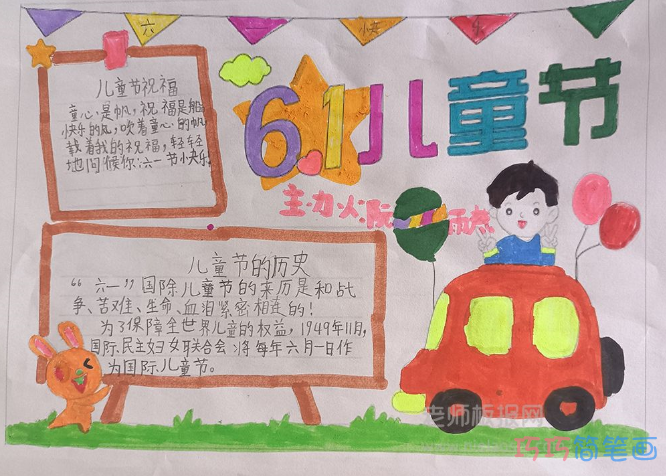 六 一 快 乐
6.1儿童节
儿童节祝福
童心是帆,祝福是船
快乐的风,吹着童心的帆
载着我的祝福,轻轻
地问候你:六一节小快乐。
儿童节的历史
“六一”国际儿童节的来历是和战
争、苦难、生命、血泪紧密相连的!
为了保障全世界儿童的权益,1949年11月,
国际民主妇女联合会将每年六月一日作
为国际儿童节。
老师板报网
巧巧简笔画